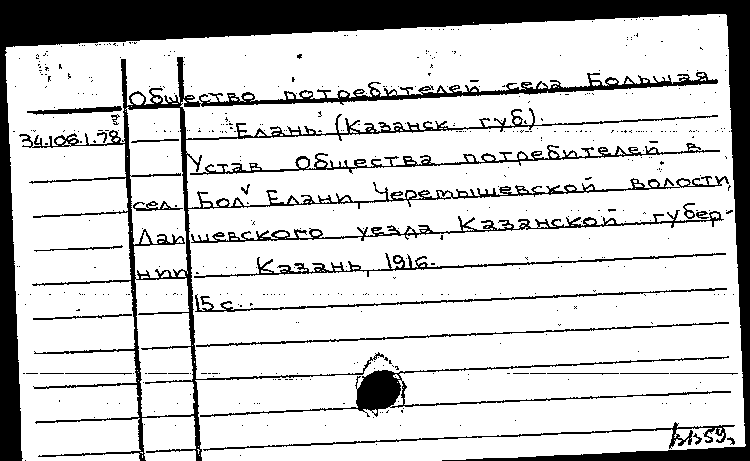 Общество потребителей села Большая
34.106.1.78 Елань (Казанск. губ.).
Устав Общества потребителей в
сел. Бол. Елани, Черемышевской волости
Лаишевского уезда, Казанской губер-
нии. Казань, 1916.
15 с.